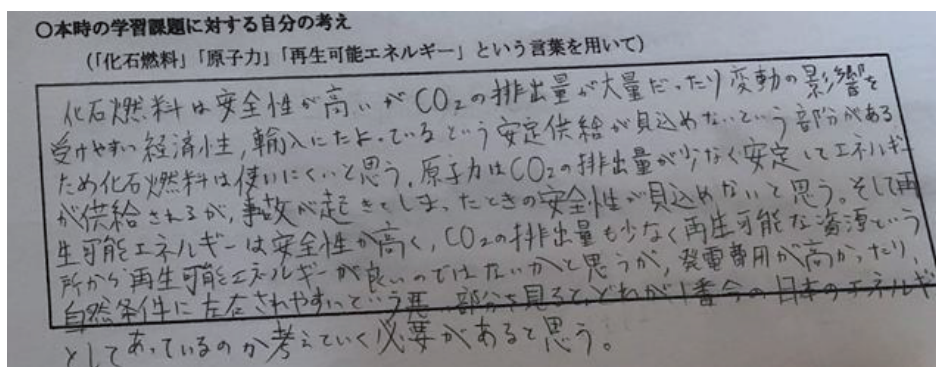 ○本時の学習課題に対する自分の考え
(「化石燃料」「原子力」「再生可能エネルギー」という言葉を用いて)
化石燃料は安全性が高いがCO₂の排出量が大量だったり変動の影響を
受けやすい経済性,輸入にたよっているという安定供給が見込めないという部分がある
ため化石燃料は使いにくいと思う。原子力はCO₂の排出量が少なく安定してエネルギー
が供給されるが,事故が起きてしまったときの安全性が見込めないと思う。そして再
生可能エネルギーは安全性が高く,CO₂の排出量も少なく再生可能な資源という
所から再生可能エネルギーが良いのではないかと思うが,発電費用が高かったり,
自然条件に左右されやすいという悪い部分を見ると,どれが1番今の日本のエネルギ
としてあっているのか考えていく必要があると思う。